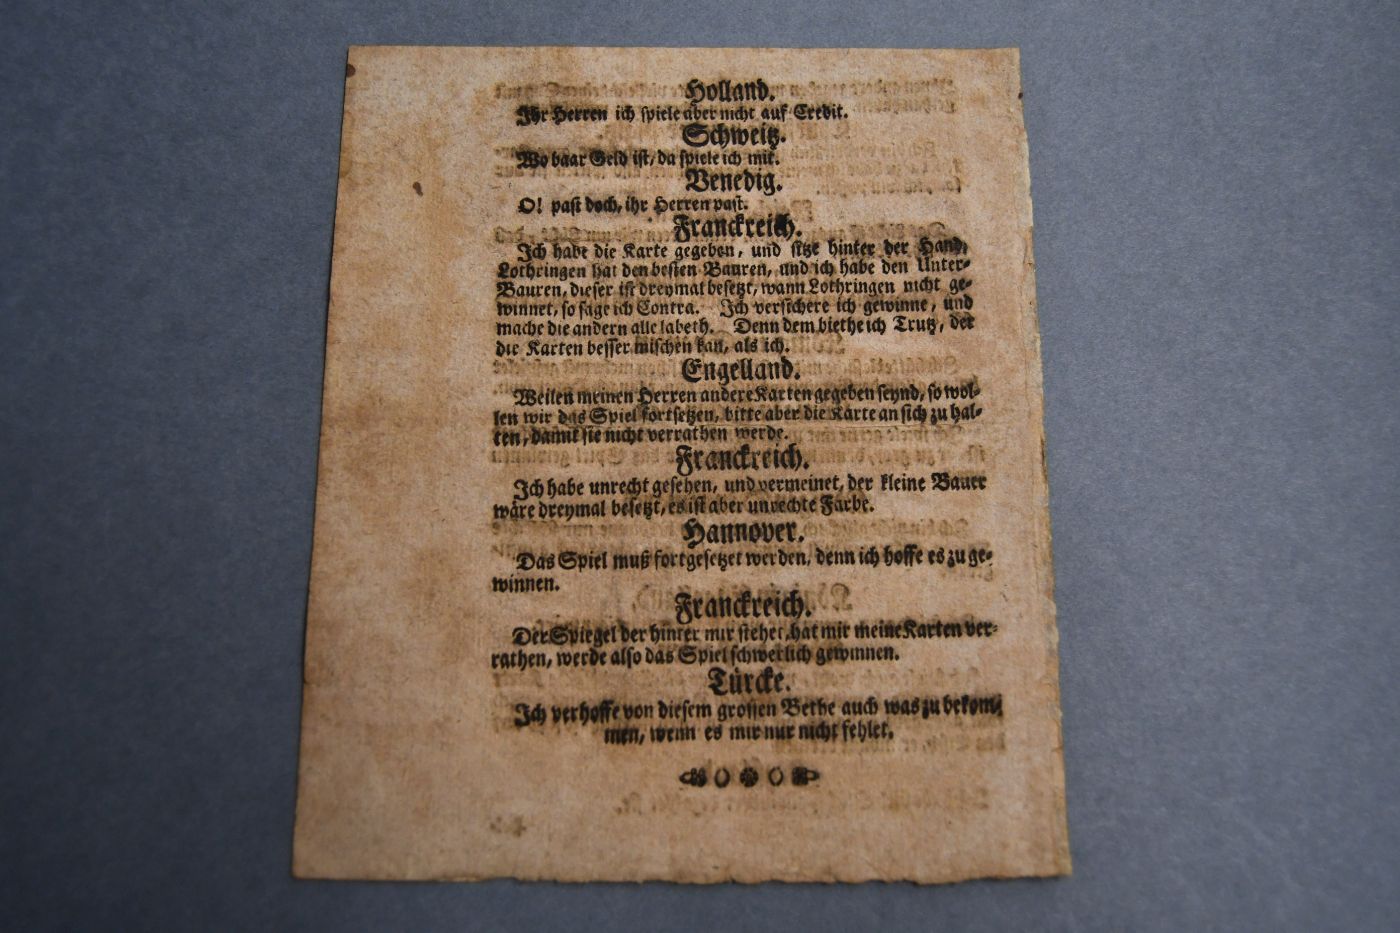 Holland.
Ihr Herren ich spiele aber nicht auf Credit.
Schweitz.
Wo baar Geld ist, da spiele ich mit.
Venedig.
O! past doch, ihr Herren past.
Franckreich.
Ich habe die Karte gegeben, und sitze hinter der Hand,
Lothringen hat den besten Bauren, und ich habe den Unter-
Bauren, dieser ist dreymal besetzt, wann Lothringen nicht ge-
winnet, so sage ich Contra. Ich versichere ich gewinne, und
mache die andern alle labeth. Denn dem biethe ich Trutz, der
die Karten besser mischen kan, als ich.
Engelland.
Weilen meinen Herren andere Karten gegeben seynd, so wol-
len wir das Spiel fortsetzen, bitte aber die Karte an sich zu hal-
ten, damit sie nicht verrathen werde.
Franckreich.
Ich habe unrecht gesehen, und vermeinet, der kleine Bauer
wäre dreymal besetzt, es ist aber unrechte Farbe.
Hannover.
Das Spiel muß fortgesetzet werden, denn ich hoffe es zu ge-
winnen.
Franckreich.
Der Spiegel der hinter mir stehet, hat mir meine Karten ver-
rathen, werde also das Spiel schwerlich gewinnen.
Türcke.
Ich verhoffe von diesem grossen Bethe auch was zu bekom-
men, wenn es mir nur nicht fehlet.